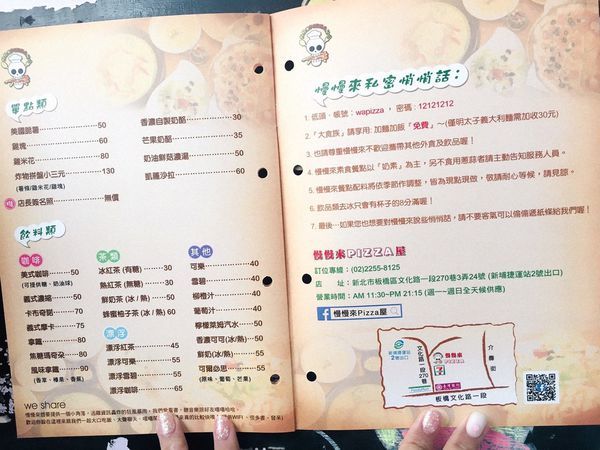 單點類
美國脆薯 50
雞塊 60
雞米花 80
炸物拼盤小三元 130
(薯條/雞米花/雞塊)
店長簽名照 無價
香濃自製奶酪 30
芒果奶酪 35
奶油鮮菇濃湯 50
凱薩沙拉 60
飲料類
咖啡
美式咖啡 50
(可提供糖、奶油球)
義式濃縮 50
卡布奇諾 70
義式摩卡 75
拿鐵 80
焦糖瑪奇朵 80
風味拿鐵 90
(香草、榛果、焦糖)
茶類
冰紅茶 (有糖) 30
熱紅茶 (無糖) 30
鮮奶茶 (冰 / 熱) 50
蜂蜜柚子茶 (冰 / 熱) 60
漂浮
漂浮紅茶 45
漂浮可樂 55
漂浮雪碧 55
漂浮咖啡 65
其他
可樂 40
雪碧 40
柳橙汁 40
葡萄汁 40
檸檬萊姆汽水 50
香濃可可 (冰/熱) 50
鮮奶 (冰/熱) 55
可爾必思 55
(原味、葡萄、芒果)
we share
慢慢來想要提供一個小角落，
慢慢來私密悄悄話：
1. 低頭，帳號：wapizza ，密碼：12121212
2.「大食族」請享用: 加麵加飯「免費」～(僅明太子義大利麵需加收30元)
3. 也請尊重慢慢來不歡迎攜帶其他外食及飲品喔！
4. 慢慢來素食餐點以「奶素」為主，另不食用蔥蒜者請主動告知服務人員。
5. 慢慢來餐點配料將依季節作調整，皆為現點現做，敬請耐心等候，請見諒。
6. 飲品類去冰只會有杯子的8分滿喔！
7. 最後…如果您也想要對慢慢來說些悄悄話，請不要客氣可以偷偷遞紙條給我們喔！
慢慢來PIZZA屋
訂位專線：(02)2255-8125
店 址：新北市板橋區文化路一段270巷3弄24號 (新埔捷運站2號出口)
營業時間：AM 11:30~PM 21:15 (週一~週日全天候供應)
慢慢來Pizza屋
新埔捷運站
2號出口
文化路一段270巷
慢慢來
PIZZA
介壽街
板橋文化路一段